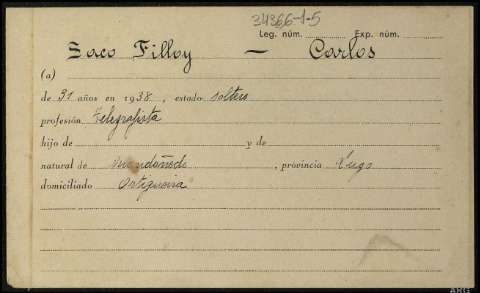 34366-1-5
Leg. núm. Exp. núm.
Saco Filloy — Carlos
(a)
de 31 años en 1938, estado soltero
profesión Telegrafista
hijo de y de
natural de Mondoñedo, provincia Lugo
domiciliado Ortigueira
ARG